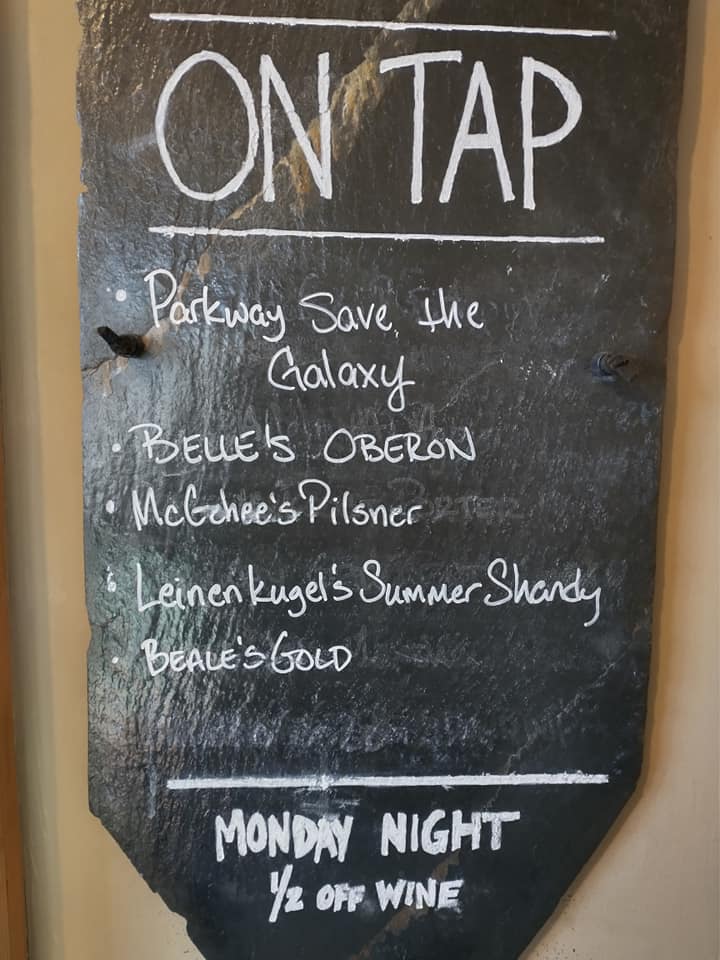 ON TAP
• Parkway Save the
Galaxy
• BELLE'S OBERON
• McGehee's Pilsner
• Leinenkugel's Summer Shandy
• BEALE'S GOLD
MONDAY NIGHT
1/2 OFF WINE